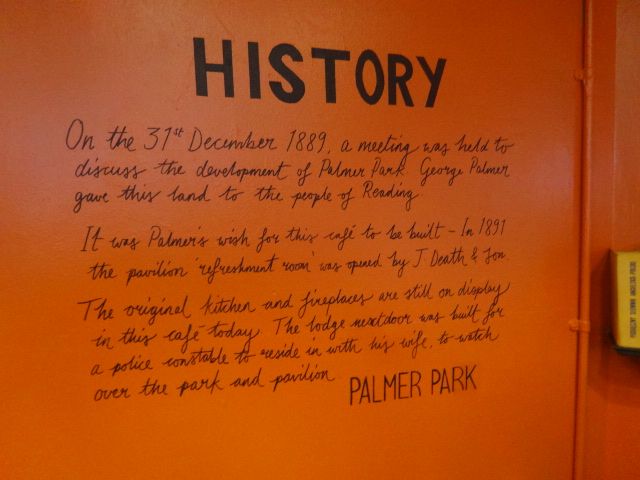 HISTORY
On the 31st December 1889, a meeting was held to
discuss the development of Palmer Park. George Palmer
gave this land to the people of Reading.
It was Palmer's wish for this café to be built - In 1891
the pavilion 'refreshment room' was opened by J. Death & Son.
The original kitchen and fireplaces are still on display
in this café today. The lodge nextdoor was built for
a police constable to reside in with his wife, to watch
over the park and pavilion
PALMER PARK